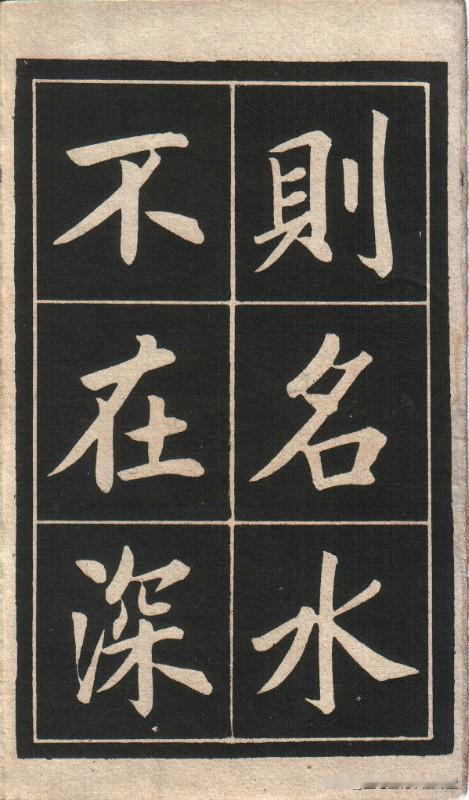 則名水
不在深